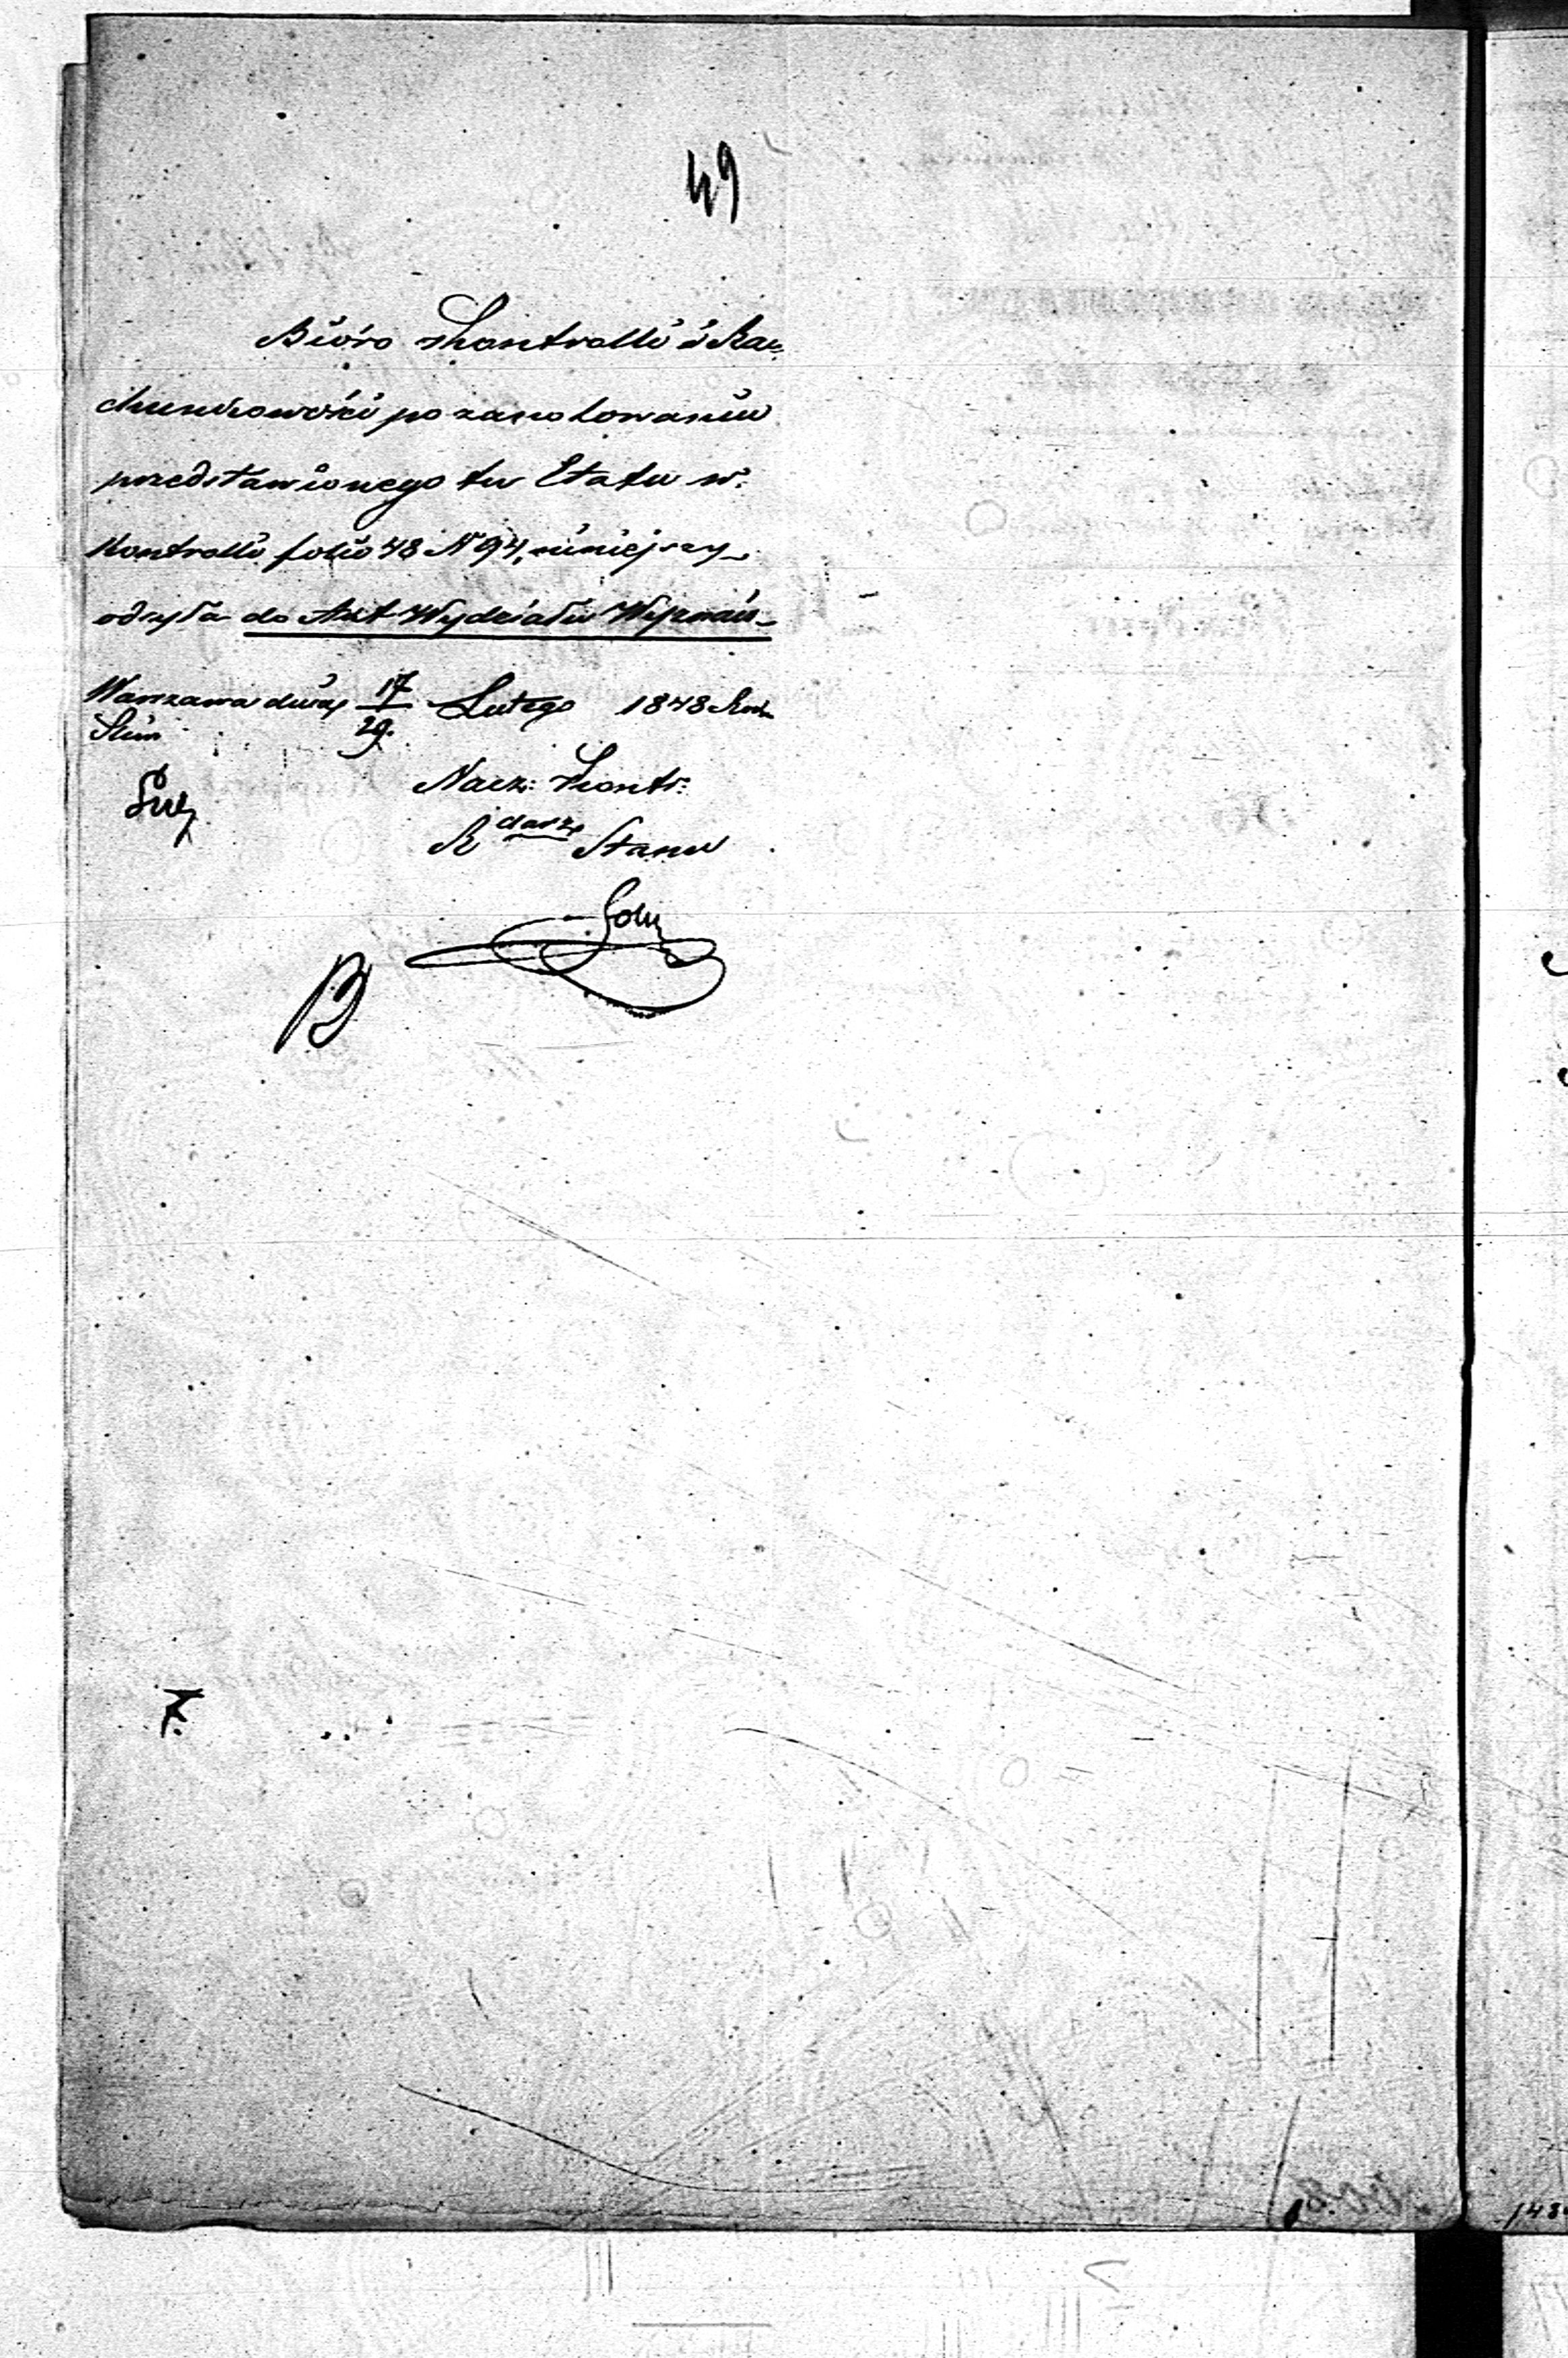 49
Bióro Kontrolli i Ra=
chunkowości po zanotowaniu
przedstawionego tu Etatu w.
Kontrolli folio 48 N 94, niniejszy
odsyła do Akt Wydziału Wyznań
Warszawa dnia 17/29 Lutego 1848 Roku
Nacz: Kontr:
R darz Stanu
B